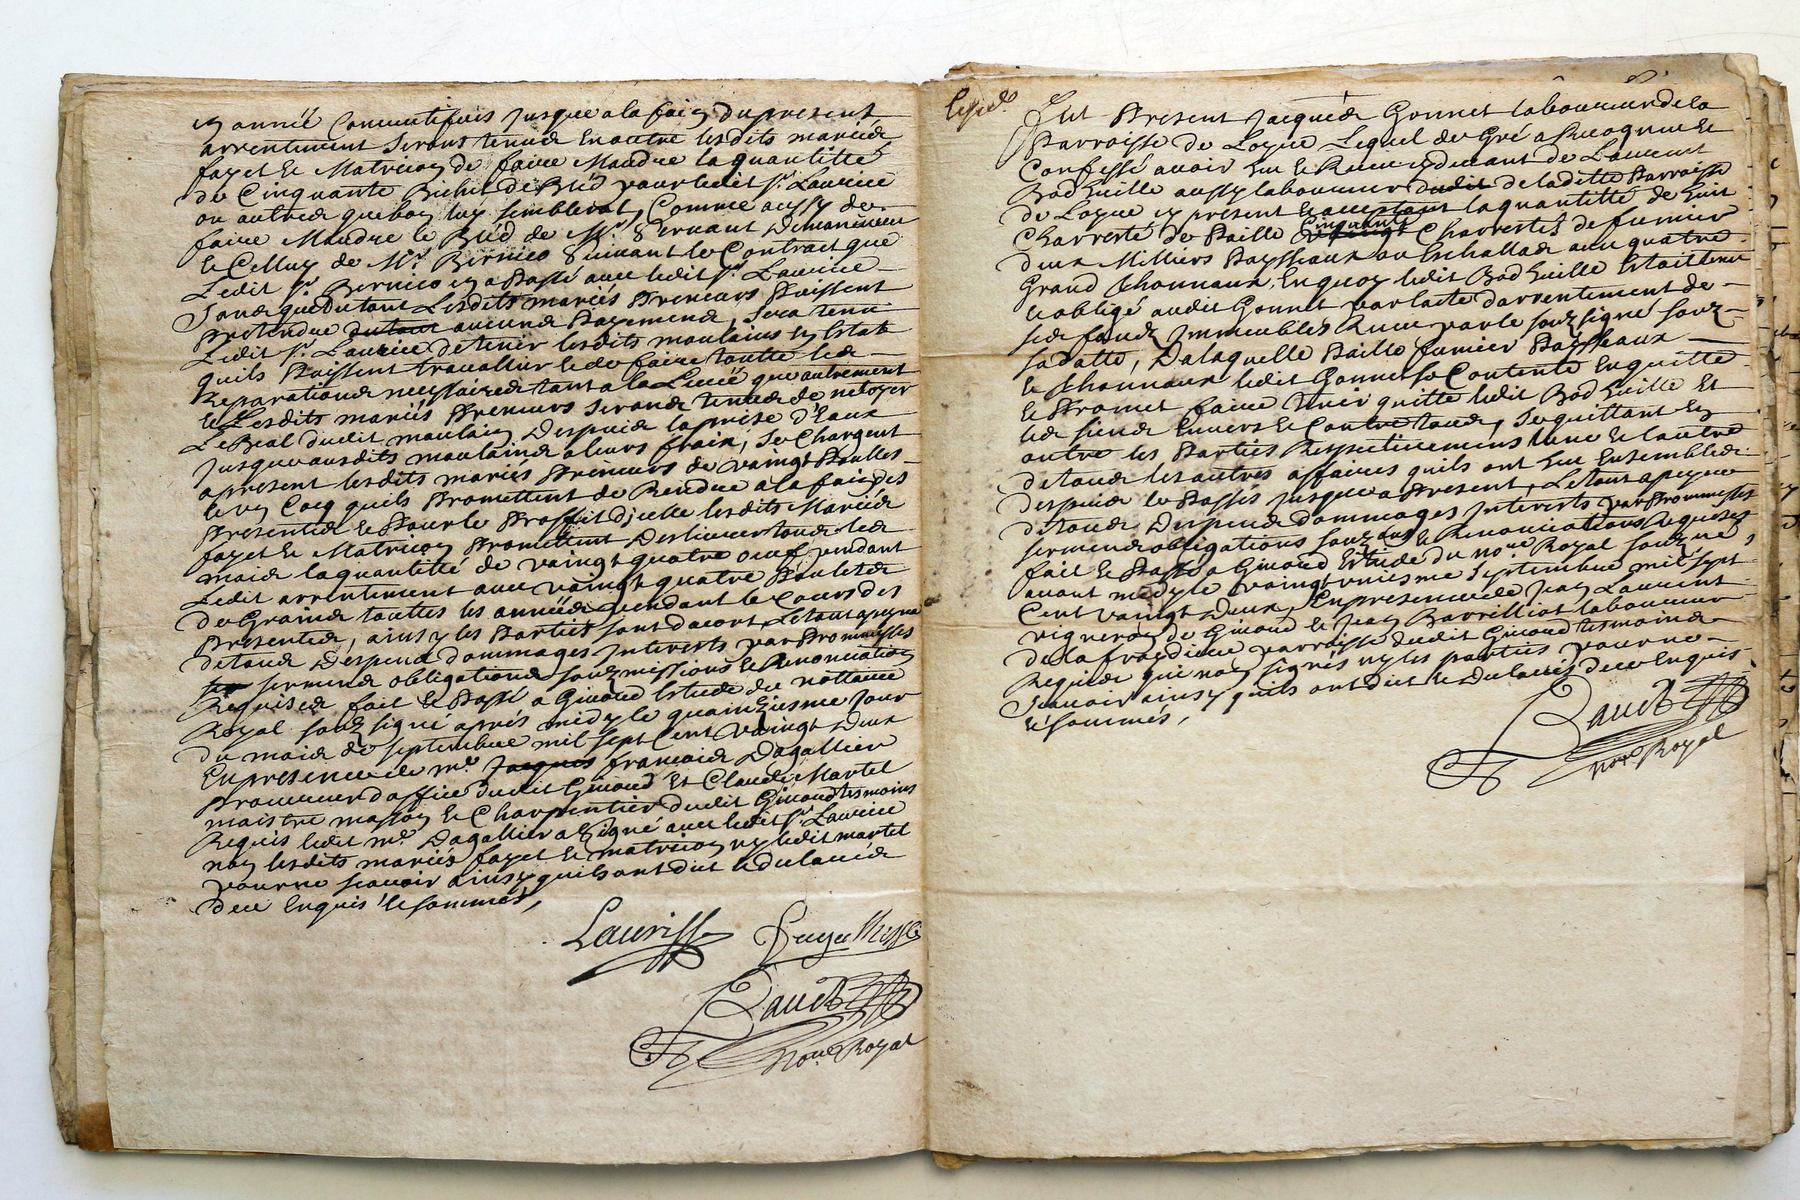 en année Consecutifuis Jusque a la fain du present
arrentement Seront tenus En outre lesdits mariés
fayet et Matricon de faire Maudre la quantitté
de Cinquante Bichet de Bléd pour ledit Sr. Laurice
ou autres que bon luy semblerat, Comme aussy de
faire Maudre le Bléd de Mr. Servant
et Celluy de Mr. Bernico Suivant le Contrait que
Ledit Sr. Bernico en a Passé avec ledit Sr. Laurice
Sans que dutout Lesdits mariés Preneurs Puissent
pretendre dutout aucuns Payement, Sera tenu
Ledit Sr. Laurice detenir lesdits moulains En Estat
quils Puissent travallier et de faire toutte les
Reparations nessaires tant a la Liuée que autrement
et Lesdits mariés Preneurs Seronts tenus de netoyer
Le Beal dudit moulain Despuis la prise d'Eaux
Jusque ausdits moulains a leurs frais, Se Chargent
apresent lesdits mariés Preneurs de vaingt Poulles
et un Cocq quils Promettent de Rendre a la fain des
Presentes et Pour le Proffit d'jcelle lesdits Mariés
fayet et Matricon Promettent Deslivrer tous les
mais la quantitté de vaingt quatre oeuf pendant
Ledit arrentement avec vaingt quatre Poulets
de Grains touttes les années pendant le Cours des
Presentes, ainsy les Parties sont dacort Le tout apeyne
detous Despens dommages Interets par Prommesses
serments obligations soubmissions et Renonciations
Requises fait et Passé a Giuoud Estude du nottaire
Royal soubsigné apres midy le quainziesme Jour
du mois de septembre mil sept Cent vaingt Deux
En presence de me. Jacques francois Dagallier
Procureur d'office dudit Giuoud Et Claude Martel
maistre masson et Charpentier dudit Giuoud tesmoins
Requis ledit me. Dagallier a Signé avec ledit Sr. Laurice
non lesdits mariés fayet et matricon ny ledit martel
pour ne scavoir ainsy quils ont dit et dulairés
dece Enquis et sommés,
Laurisse
Dauet
Nore. Royal
Fut Present Jacques Gonnet laboureur de la
Parroisse de Loyse Lequel de Gré a Recognu et
Confessé avoir Eu et Receu cy devant de Laurent
Bod Guille aussy laboureur dudit de ladtte Parroisse
de Loyse cy present et acceptant la quantitté de huit
Charretté de Paille Cinquante Charrettes de fumier
deux Milliers Paysseaux ou Eschallas avec quatre
Grand Thonnaux, En quoy ledit Bod Guille Estait tenu
et obligé audit Gonnet par lacte darrentement de
ses fonds Immeubles Receu par le soubsigné soubz
sa datte, De laquelle Paille fumier Paysseaux
et Thonnaux ledit Gonnet se Contente En quitte
et Promet faire tenir quitte ledit Bod Guille Et
les siens Envers et Contre tous, Se quittant En
outre les Parties Respectivement lune et lautre
detous les autres affaires quils ont Eu Ensembles
despuis le Passés Jusque a Present, Le tout apeyne
detous Despens dommages Interets par Prommesses
serments obligations soubz et Renonciations Requises
fait et Passé a Giuoud Estude du nore. Royal soubsigné,
avant midy le vaingt uniesme Septembre mil sept
Cent vaingt Deux, En presence de Jean Laurent
vigneron de Giuoud et Jean Barrilliot laboureur
de la parroisse dudit Giuoud tesmoins
Requis qui non signés ny les parties pour ne
Scavoir ainsy quils ont dit et Dulairés dece Enquis
et sommés,
Dauet
Nore. Royal